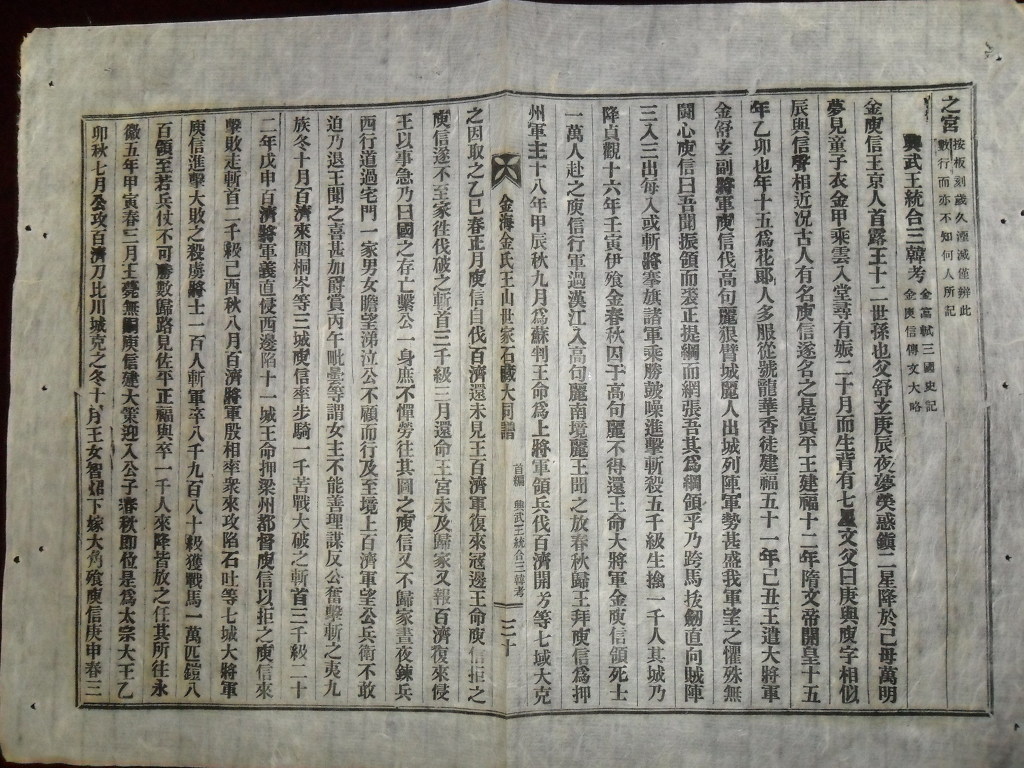 之宮 按板刻歲久湮滅僅辨此
數行而亦不知何人所記
興武王統合三韓考 金富軾三國史記
金庾信傳文大略
金庾信王京人首露王十二世孫也父舒玄庚辰夜夢熒惑鎭二星降於己母萬明
夢見童子衣金甲乘雲入堂尋有娠二十月而生背有七星文父曰庚與庾字相似
辰與信聲相近况古人有名庾信遂名之是眞平王建福十二年隋文帝開皇十五
年乙卯也年十五爲花郞人多服從號龍華香徒建福五十一年己丑王遣大將軍
金舒玄副將軍庾信伐高句麗狼臂城麗人出城列陣軍勢甚盛我軍望之懼殊無
鬪心庾信曰吾聞振領而裘正提綱而網張吾其爲綱領乎乃跨馬拔劒直向賊陣
三入三出每入或斬將搴旗諸軍乘勝鼓噪進擊斬殺五千級生擒一千人其城乃
降貞觀十六年壬寅伊飡金春秋囚于高句麗不得還王命大將軍金庾信領死士
一萬人赴之庾信行軍過漢江入高句麗南境麗王聞之放春秋歸王拜庾信爲押
州軍主十八年甲辰秋九月爲蘇判王命爲上將軍領兵伐百濟開芳等七城大克
金海金氏王山世家石藏大同譜 首編 興武王統合三韓考 三十
之因取之乙巳春正月庾信自伐百濟還未見王百濟軍復來寇邊王命庾信拒之
庾信遂不至家徃伐破之斬首三千級三月還命王宮未及歸家又報百濟復來侵
王以事急乃曰國之存亡繫公一身庶不憚勞往其圖之庾信又不歸家晝夜鍊兵
西行道過宅門一家男女瞻望涕泣公不顧而行及至境上百濟軍望公兵衛不敢
迫乃退王聞之喜甚加爵賞丙午毗曇等謂女主不能善理謀反公奮擊斬之夷九
族冬十月百濟來圍桐岑等三城庾信率步騎一千苦戰大破之斬首三千級二十
二年戊申百濟將軍義直侵西邊陷十一城王命押梁州都督庾信以拒之庾信來
擊敗走斬首二千級己酉秋八月百濟將軍殷相率衆來攻陷石吐等七城大將軍
庾信進擊大敗之殺虜將士一百人斬軍卒八千九百八十級獲戰馬一萬匹鎧八
百領至若兵仗不可勝數歸路見佐平正福與卒一千人來降皆放之任其所往永
徽五年甲寅春二月王薨無嗣庾信建大業迎入公子春秋即位是爲太宗大王乙
卯秋七月公攻百濟刀比川城克之冬十月王女智炤下嫁大角飡庾信庚申春三